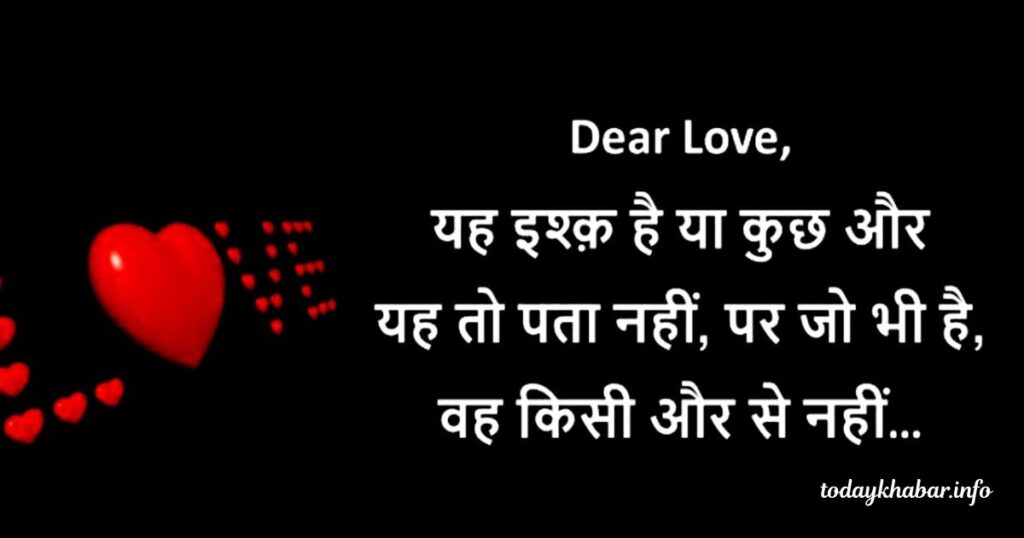 Dear Love,
यह इश्क़ है या कुछ और
यह तो पता नहीं, पर जो भी है,
वह किसी और से नहीं...
todaykhabar.info